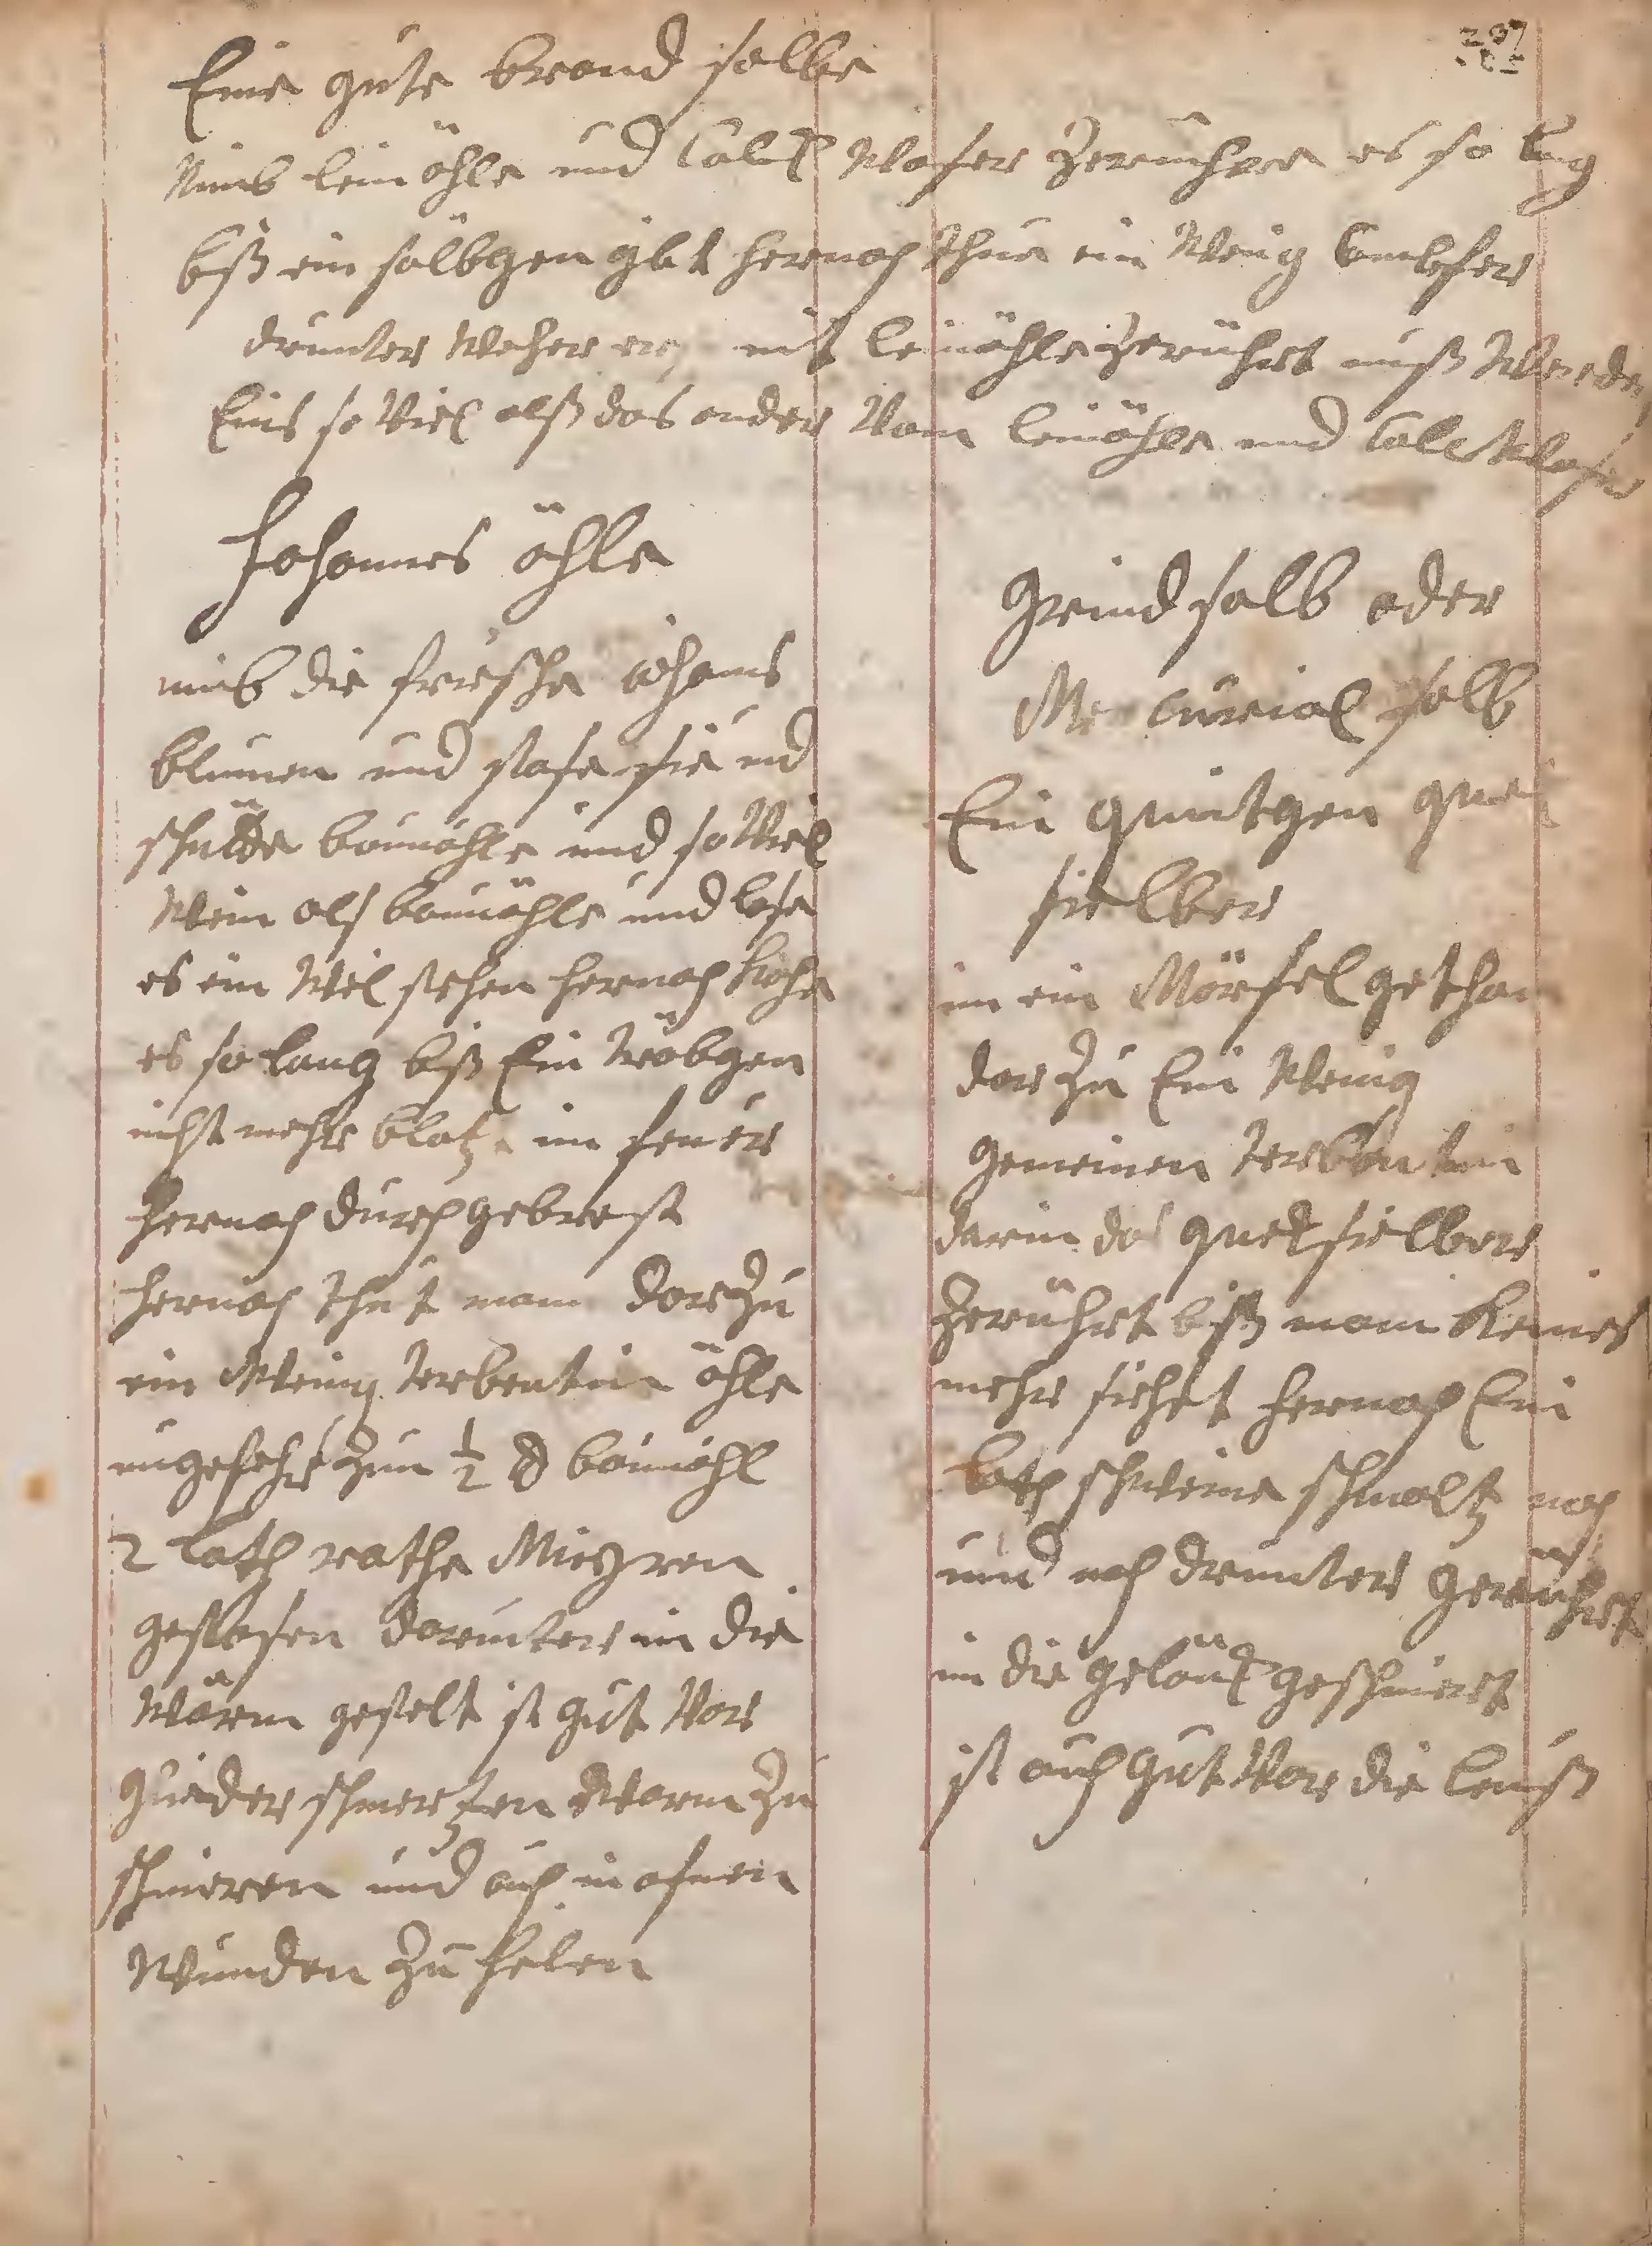 237
Eine gute brand salbe
Nimb leinöhle und Calck Waser Zerrühre es so lang
biß ein sälbgen gibt hernach thue ein Wenig Campfer
drunter Welcher mit leinöhle Zerrührt muß Werden
Eins so Viel alß das ander Vom leinöhle und Calck Waser
Johannes öhle
nimb die friesche iohans
blumen und stose sie und
schütte baumöhle und so Viel
Wein als baumöhle und lase
es ein Weil stehen hernach koche
es so lang biß Ein träbgen
nicht mehr blatz im feuer
hernach durch gebrest
hernach thut man dar Zu
ein Wenig terbentin öhle
ungefehr Zum ½ ℔ baumöhl
2 loth rothe Mirhren
gestosen darunter in die
Wärm gestelt ist gut Vor
glieder schmertzen Warm Zu
schmieren und auch in ofnen
Wunden Zu helen
Grind salb oder
Mercurial salb
Ein quintgen queck
sielber
in ein Mörsel gethan
dar Zu Ein Wenig
gemeinen terbentin
darin das quecksielber
Zerrührt biß man keines
mehr siehet hernach Ein
loth schweine schmaltz nach
und nach drunter gerührt
in die gelänck geschmiert
ist auch gut Vor die leuß